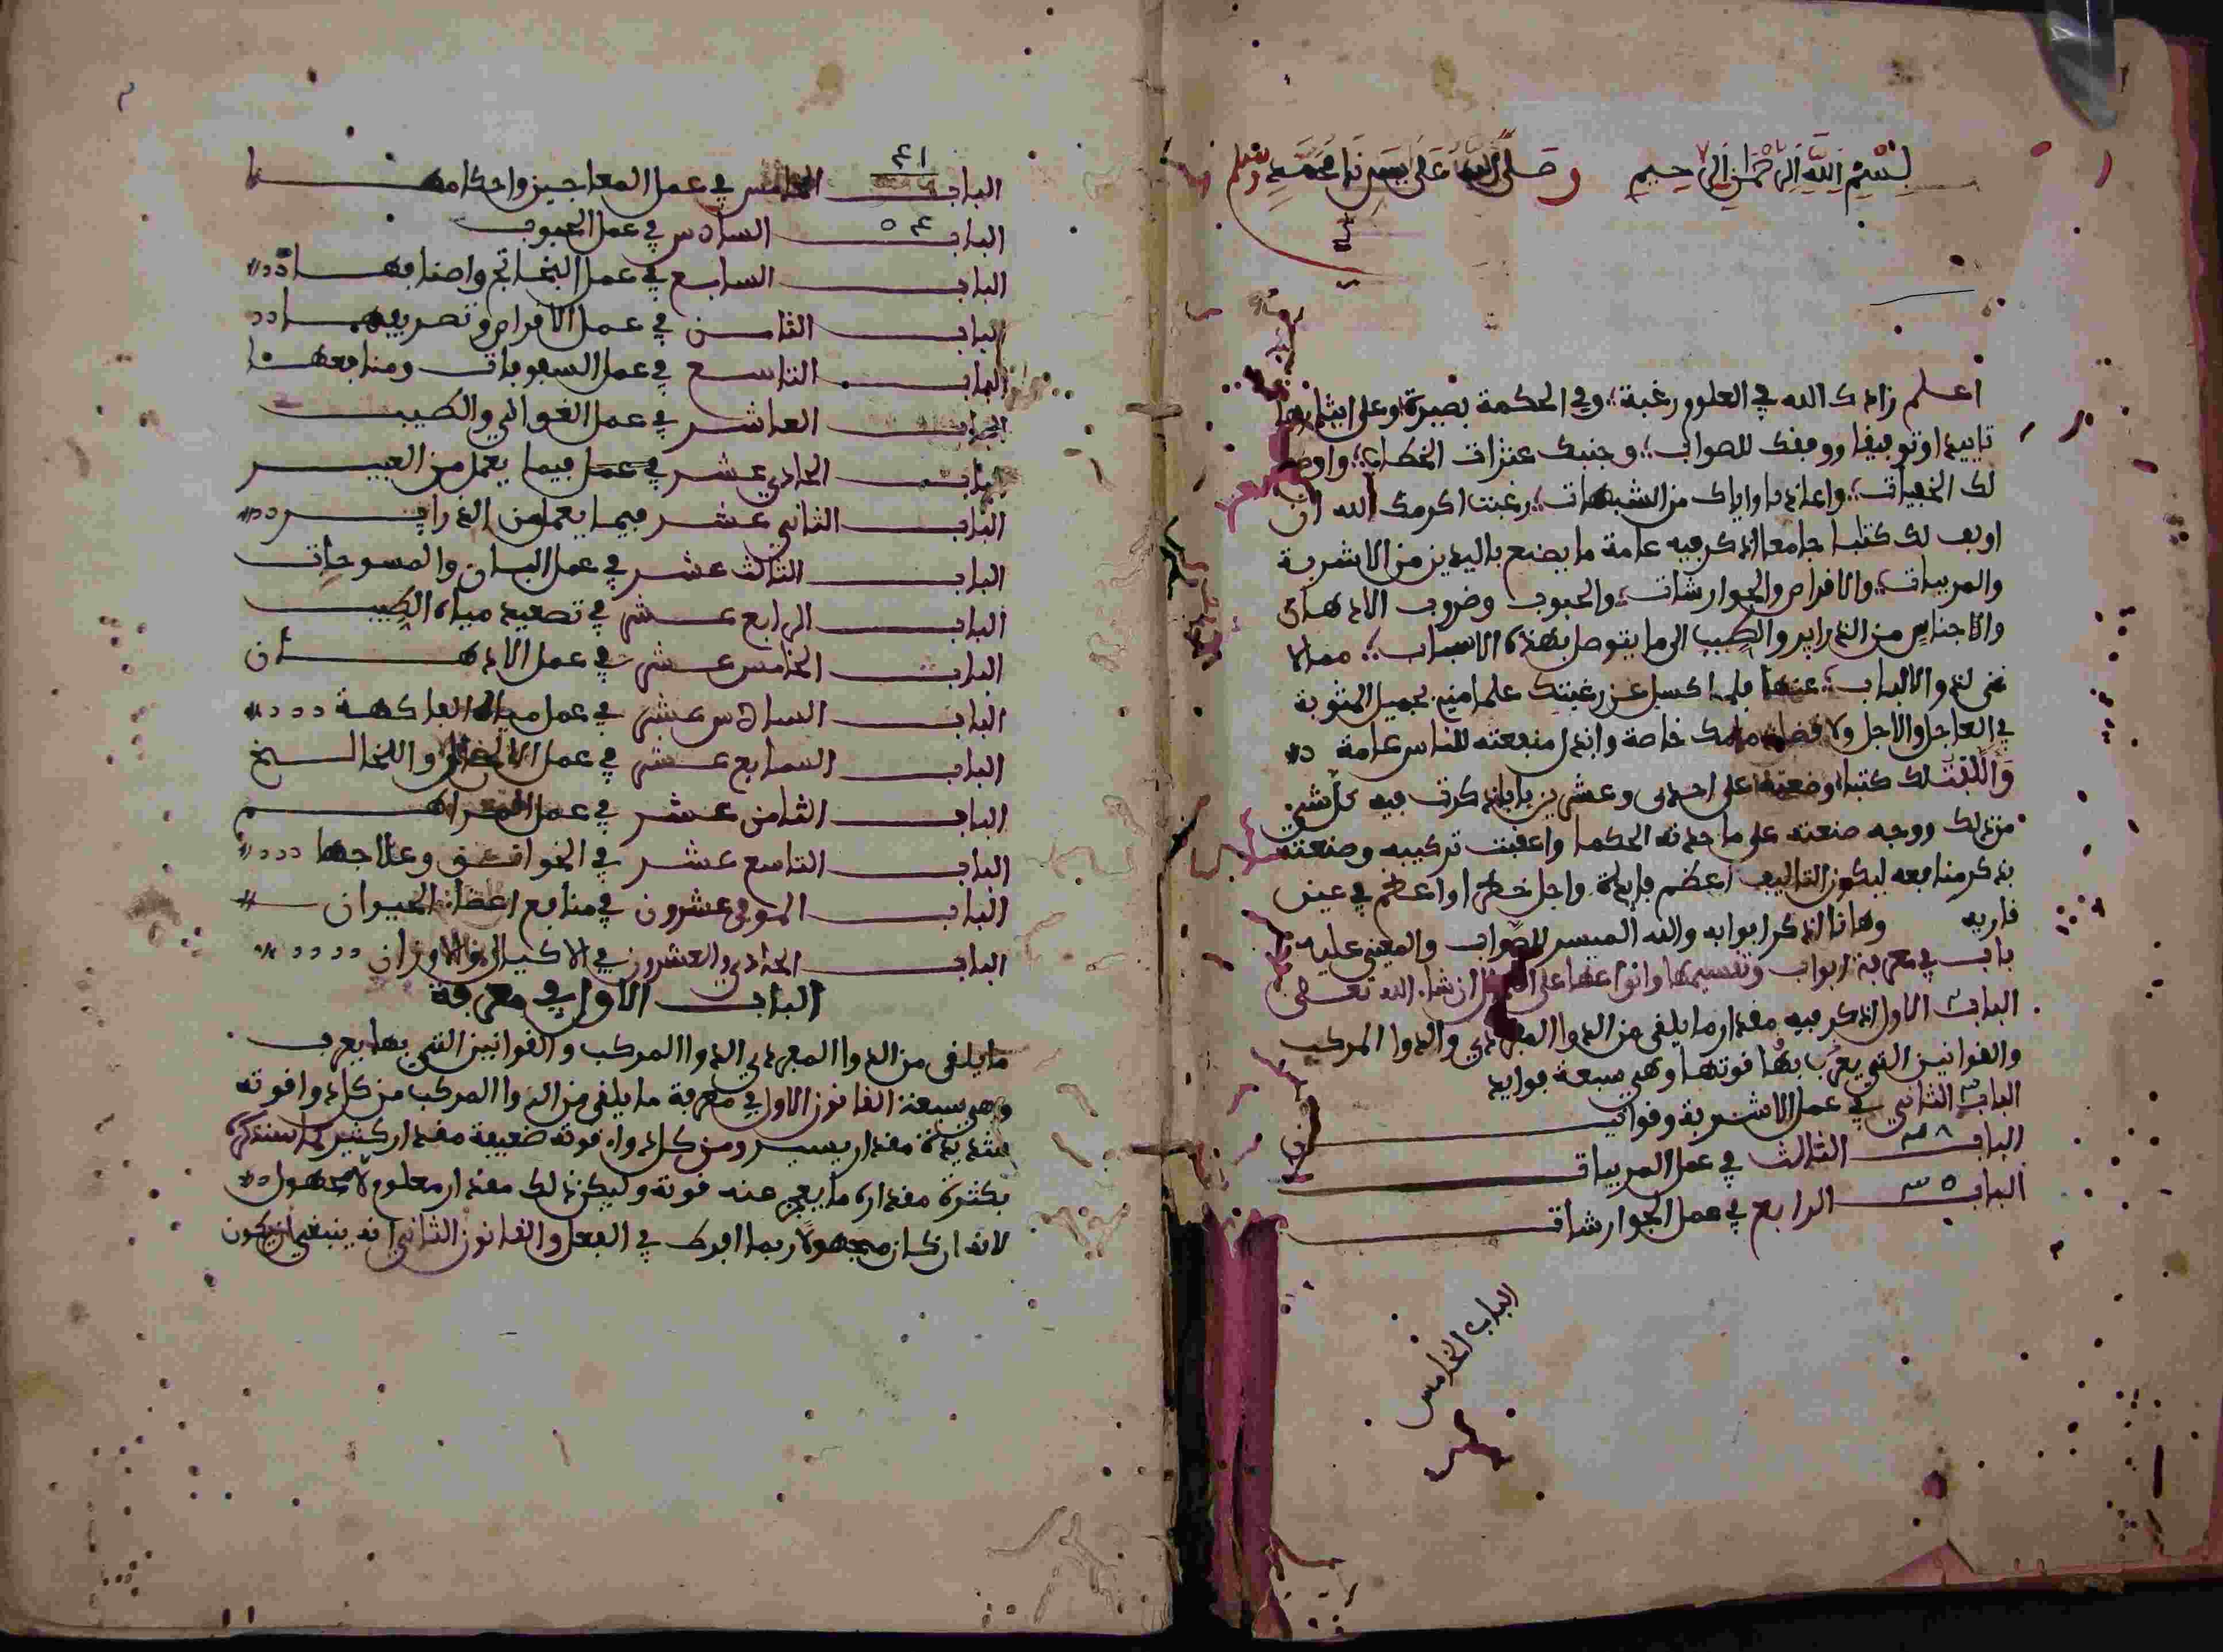 بسم الله الرحمن الرحيم وصلى الله على سيدنا محمد وسلم
اعلم زادك الله في العلوم رغبة وفي الحكمة بصيرة وعلى ايثارها
تاييدا وتوفيقا ووفقك للصواب وجنبك عثرات الخطاء واوضح
لك الخفيات واعاذنا واياك من الشبهات رغبت اكرمك الله ان
اولف لك كتابا جامعا اذكر فيه عامة ما يصنع باليدين من الاشربة
والمربيات والاقراص والجوارشات والحبوب وضروب الادهان
والاجناس من الذراير والطيب الى ما يتوصل بهذه الاسباب مما لا
غنى لذو الالباب عنها فلم اكسل عن رغبتك علما مني بجميل المثوبة
في العاجل والاجل ولا قضاء خاصة وابذل منفعته للناس عامة
والفت لك كتبا وضعته على احدى وعشرين بابا ذكرت فيه كل شيء
من ذلك ووجه صنعته على ما حدته الحكما واعقبت تركيبه وصنعته
بذكر منافعه ليكون التاليف اعظم فايدة واجل خطرا واعظم في عين
قاريه وها انا اذكر ابوابه والله الميسر للصواب والمعين عليه
باب في معرفة ابواب وتقسيمها وانواعها على ان شاء الله تعلى
الباب الاول اذكر فيه مقدار ما يلقى من الدوا المفرد في والدوا المركب
والقوانين التي يعرف بها قوتها وهي سبعة فوايد
الباب الثاني في عمل الاشربة
الباب ٣٨ الثالث في عمل المربيات
الباب ٣٥ الرابع في عمل الجوارشات
الباب الخامس
الباب ٤١ الخامس في عمل المعاجين واحكامها
الباب ٤٥ السادس في عمل الحبوب
الباب السابع في عمل البخاتج واصنافها
الباب الثامن في عمل الاقراص وتصريفها
الباب التاسع في عمل السفوفات ومنافعها
الباب العاشر في عمل الغوالي والطيب
الباب الحادي عشر في عمل فيما يعمل من العبير
الباب الثاني عشر فيما يعمل من الذراير
الباب الثالث عشر في عمل البان والمسوحات
الباب الرابع عشر في تصعيد مياه الطيب
الباب الخامس عشر في عمل الادهان
الباب السادس عشر في عمل مياه الفاكهة
الباب السابع عشر في عمل واللخالخ
الباب الثامن عشر في عمل المراهم
الباب التاسع عشر في الخوانق وعلاجها
الباب الموفي عشرون في منافع اعضاء الحيوان
الباب الحادي والعشرون في الاكيال والاوزان
الباب الاول في معرفة
ما يلقى من الدوا المفرد في الدوا المركب والقوانين التي بها يعرف
وهي سبعة القانون الاول في معرفة ما يلقى من الدوا المركب من كل دوا قوته
شديدة مقدار يسير ومن كل دوا قوته ضعيفة مقدار كثير
بكثرة مقداره ما يعجز عنه قوته وليكن ذلك مقدار معلوم لا مجهول
لانه ان كان مجهولا ربما افرط في الفعل والقانون الثاني انه ينبغي ان يكون